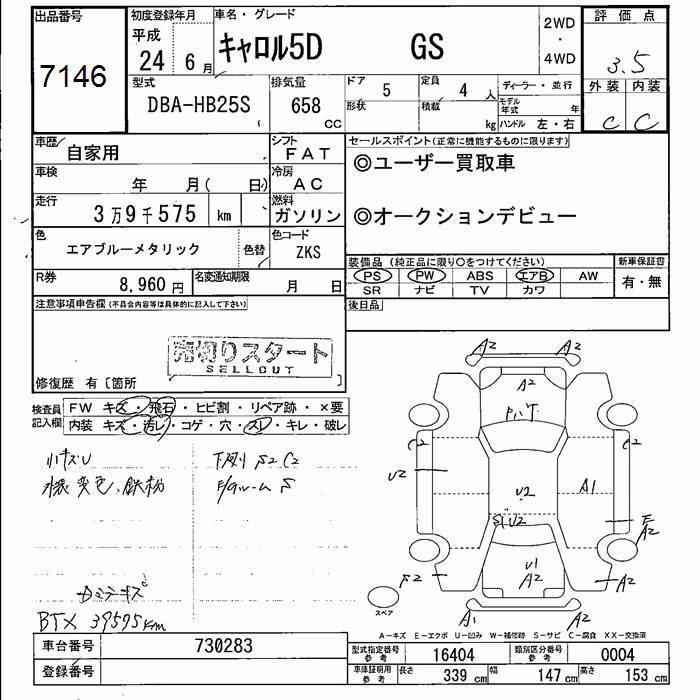 出品番号
7146
初度登録年月
平成
24 6月
車名・グレード
キャロル5D GS
2WD
・
4WD
評価点
3.5
外装 内装
C C
型式
DBA-HB25S
排気量
658
CC
ドア 5
形状
定員 4 人
積載 kg
ディーラー・並行
モデル年式 年
ハンドル 左・右
車歴 自家用
シフト FAT
車検 年 月( 日)
冷房 AC
走行 3万9千575 km
燃料 ガソリン
色 エアブルーメタリック 色替
色コード ZKS
R券 8,960円
名変通知期限 月 日
セールスポイント(正常に機能するものに限ります)
◎ユーザー買取車
◎オークションデビュー
装備品(純正品に限り○をつけてください)
新車保証書
PS PW ABS エアB AW
SR ナビ TV カワ
有・無
後日品
注意事項申告欄(不具合内容等は具体的に記入して下さい)
売切りスタート
SELLOUT
修復歴 有〔箇所 〕
検査員記入欄
FW キズ・飛石・ヒビ割・リペア跡・×要
内装 キズ・汚レ・コゲ・穴・スレ・キレ・破レ
小キズU
下廻り S2 C2
変色、鉄粉
S
キズ
BTX 39575km
A2 A2
A2
C2 C2
U2
U2
A1
U2
E
A2
U1
A2
S2
A2
A1 A2
スペア
A-キズ E-エクボ U-凹み W-補修跡 S-サビ C-腐食 XX-交換済
車台番号 730283
登録番号
型式指定番号 参考 16404
類別区分番号 参考 0004
車庫証明用 参考 長さ 339 cm 幅 147 cm 高さ 153 cm